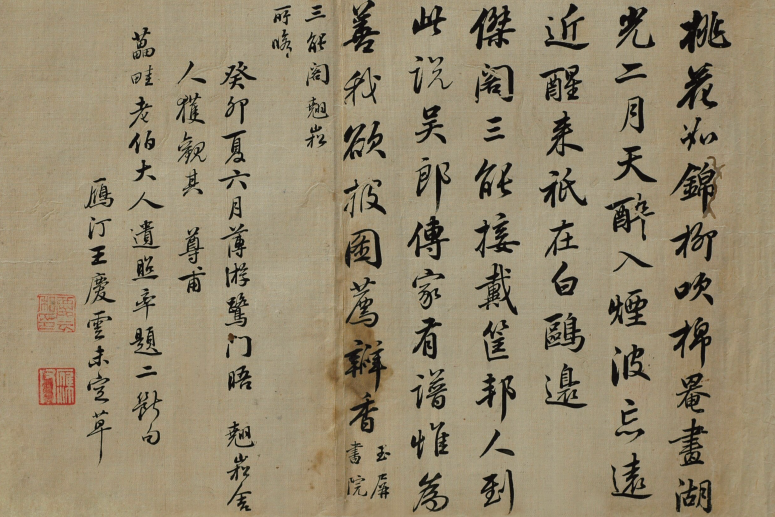 桃花如錦柳吹棉罨畫湖
光二月天醉入煙波忘遠
近醒來祇在白鷗邊
傑閣三能接戴筐邦人到
此說吳郎傳家有譜惟為
善我欲披圖薦辦香
玉屏
書院
三能閣翹崧
所
癸卯夏六月薄游鷺门晤 翹崧舍
人獲觀其 尊甫
菑畦老伯大人遺照率題二斷句
雁汀王慶雲未定草